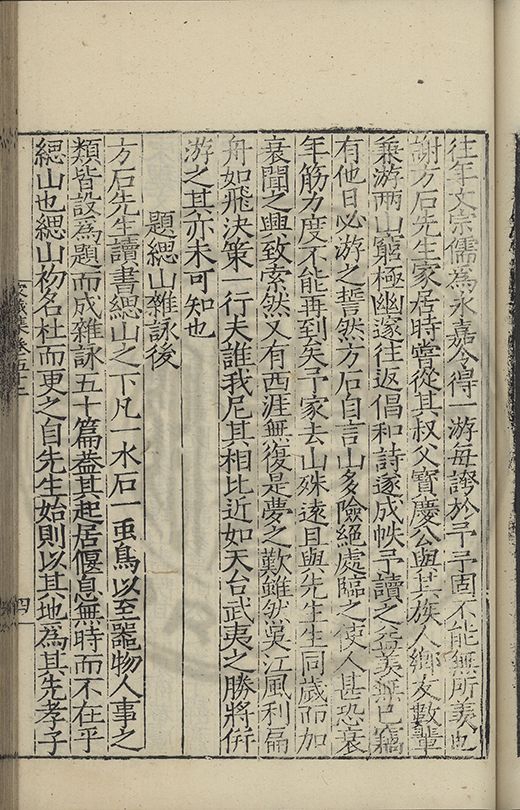 往年文宗儒為永嘉令得一游每誇於予予固不能無所羨也
謝方石先生家居時嘗從其叔父寶慶公與其族人鄉友數輩
乗游兩山窮極幽邃往返倡和詩遂成帙予讀之益羨無已竊
有他日必游之誓然方石自言山多險絕處臨之使人甚恐衰
年筋力度不能再到矣予家去山殊遠且與先生生同歲而加
衰聞之興致索然又有西涯無復是夢之歎雖然吳江風利扁
舟如飛决策一行夫誰我尼其相比近如天台武夷之勝將併
游之其亦未可知也
題緦山雜詠後
方石先生讀書緦山之下凡一水石一䖝鳥以至噐物人事之
類皆設為題而成雜詠五十篇葢其起居偃息無時而不在乎
緦山也緦山初名杜而更之自先生始則以其地為其先孝子
家藏集卷五十二
四